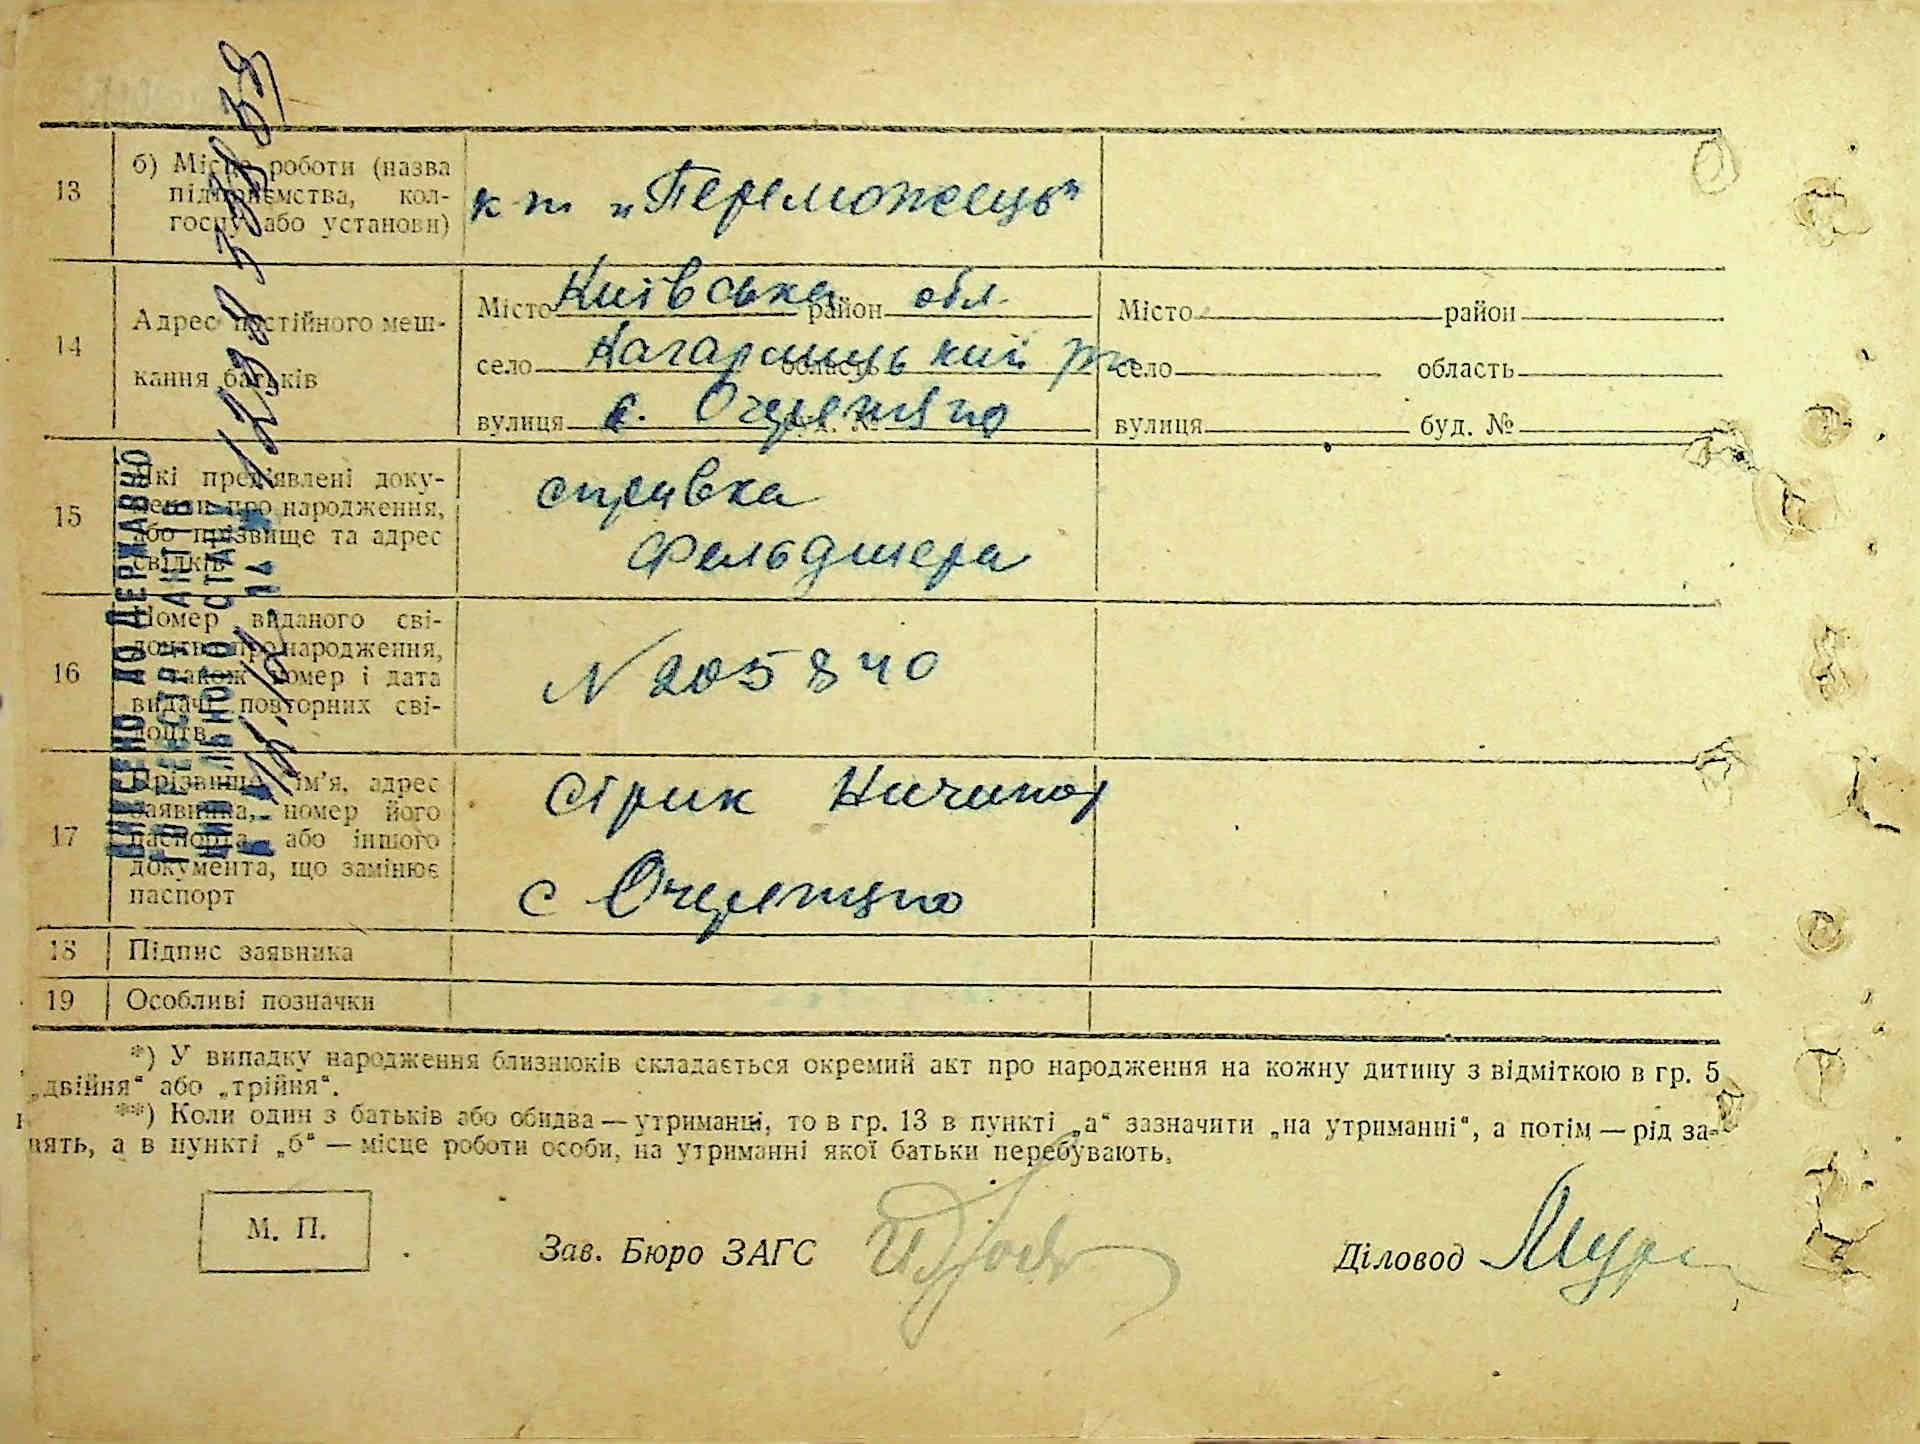 13
б) Місце роботи (назва
підприємства, кол-
госпу або установи)
к-т „Переможець"
14
Адрес постійного меш-
кання батьків
Місто Київська район обл.
село Кагарлицький область
вулиця с. Очеретяно буд. №
Місто район
село область
вулиця буд. №
15
Які пред'явлені доку-
менти про народження,
або прізвище та адрес
свідків
справка
фельдшера
16
Номер виданого сві-
доцтва про народження,
а також номер і дата
видачі повторних сві-
доцтв
N 205840
17
Прізвище, ім'я, адрес
заявника, номер його
паспорта або іншого
документа, що замінює
паспорт
Сірик Ничипор
с Очеретяно
18
Підпис заявника
19
Особливі позначки
ВНЕСЕНО ДО ДЕРЖАВНО
ГО РЕЄСТРУ АКТІВ
ЦИВІЛЬНОГО СТАНУ
*) У випадку народження близнюків складається окремий акт про народження на кожну дитину з відміткою в гр. 5
„двійня" або „трійня".
**) Коли один з батьків або обидва — утриманці, то в гр. 13 в пункті „а" зазначити „на утриманні", а потім — рід за-
нять, а в пункті „б" — місце роботи особи, на утриманні якої батьки перебувають.
М. П.
Зав. Бюро ЗАГС
Діловод